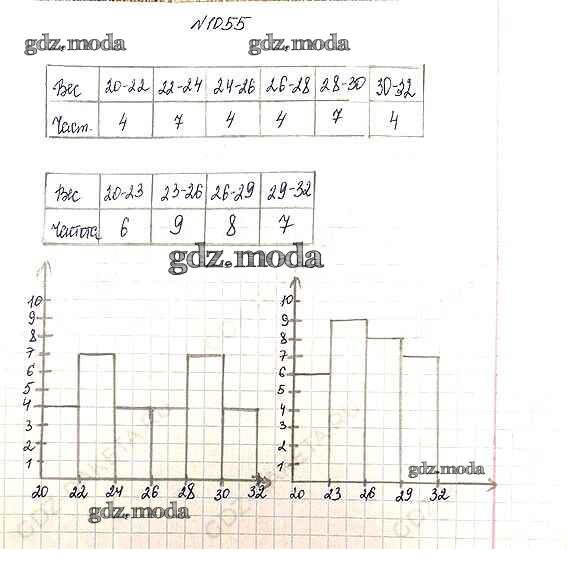 №1055
gdz.moda gdz.moda
Вес 20-22 22-24 24-26 26-28 28-30 30-32
Част. 4 7 4 4 7 4
Вес 20-23 23-26 26-29 29-32
Частота 6 9 8 7
gdz.moda
10 10
9 9
8 8
7 7
6 6
5 5
4 4
3 3
2 2
1 1
gdz.moda
20 22 24 26 28 30 32 20 23 26 29 32
gdz.moda